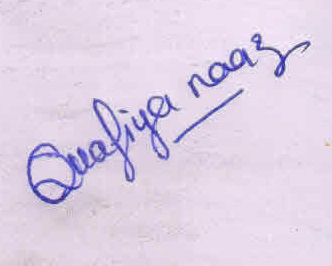 Quafiya naaz